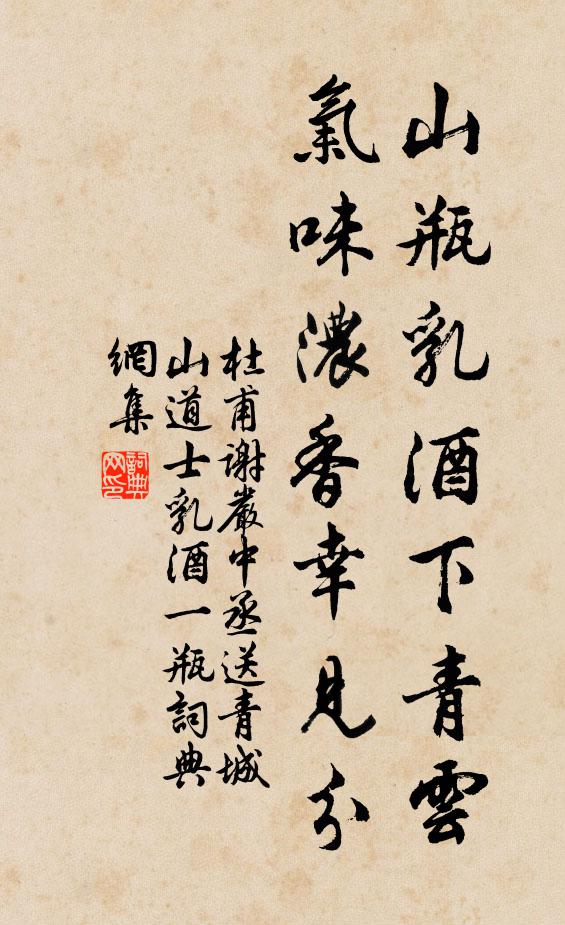 山瓶乳酒下青雲
氣味濃香幸見分
杜甫謝嚴中丞送青城
山道士乳酒一瓶詞典
網集
詞典網印